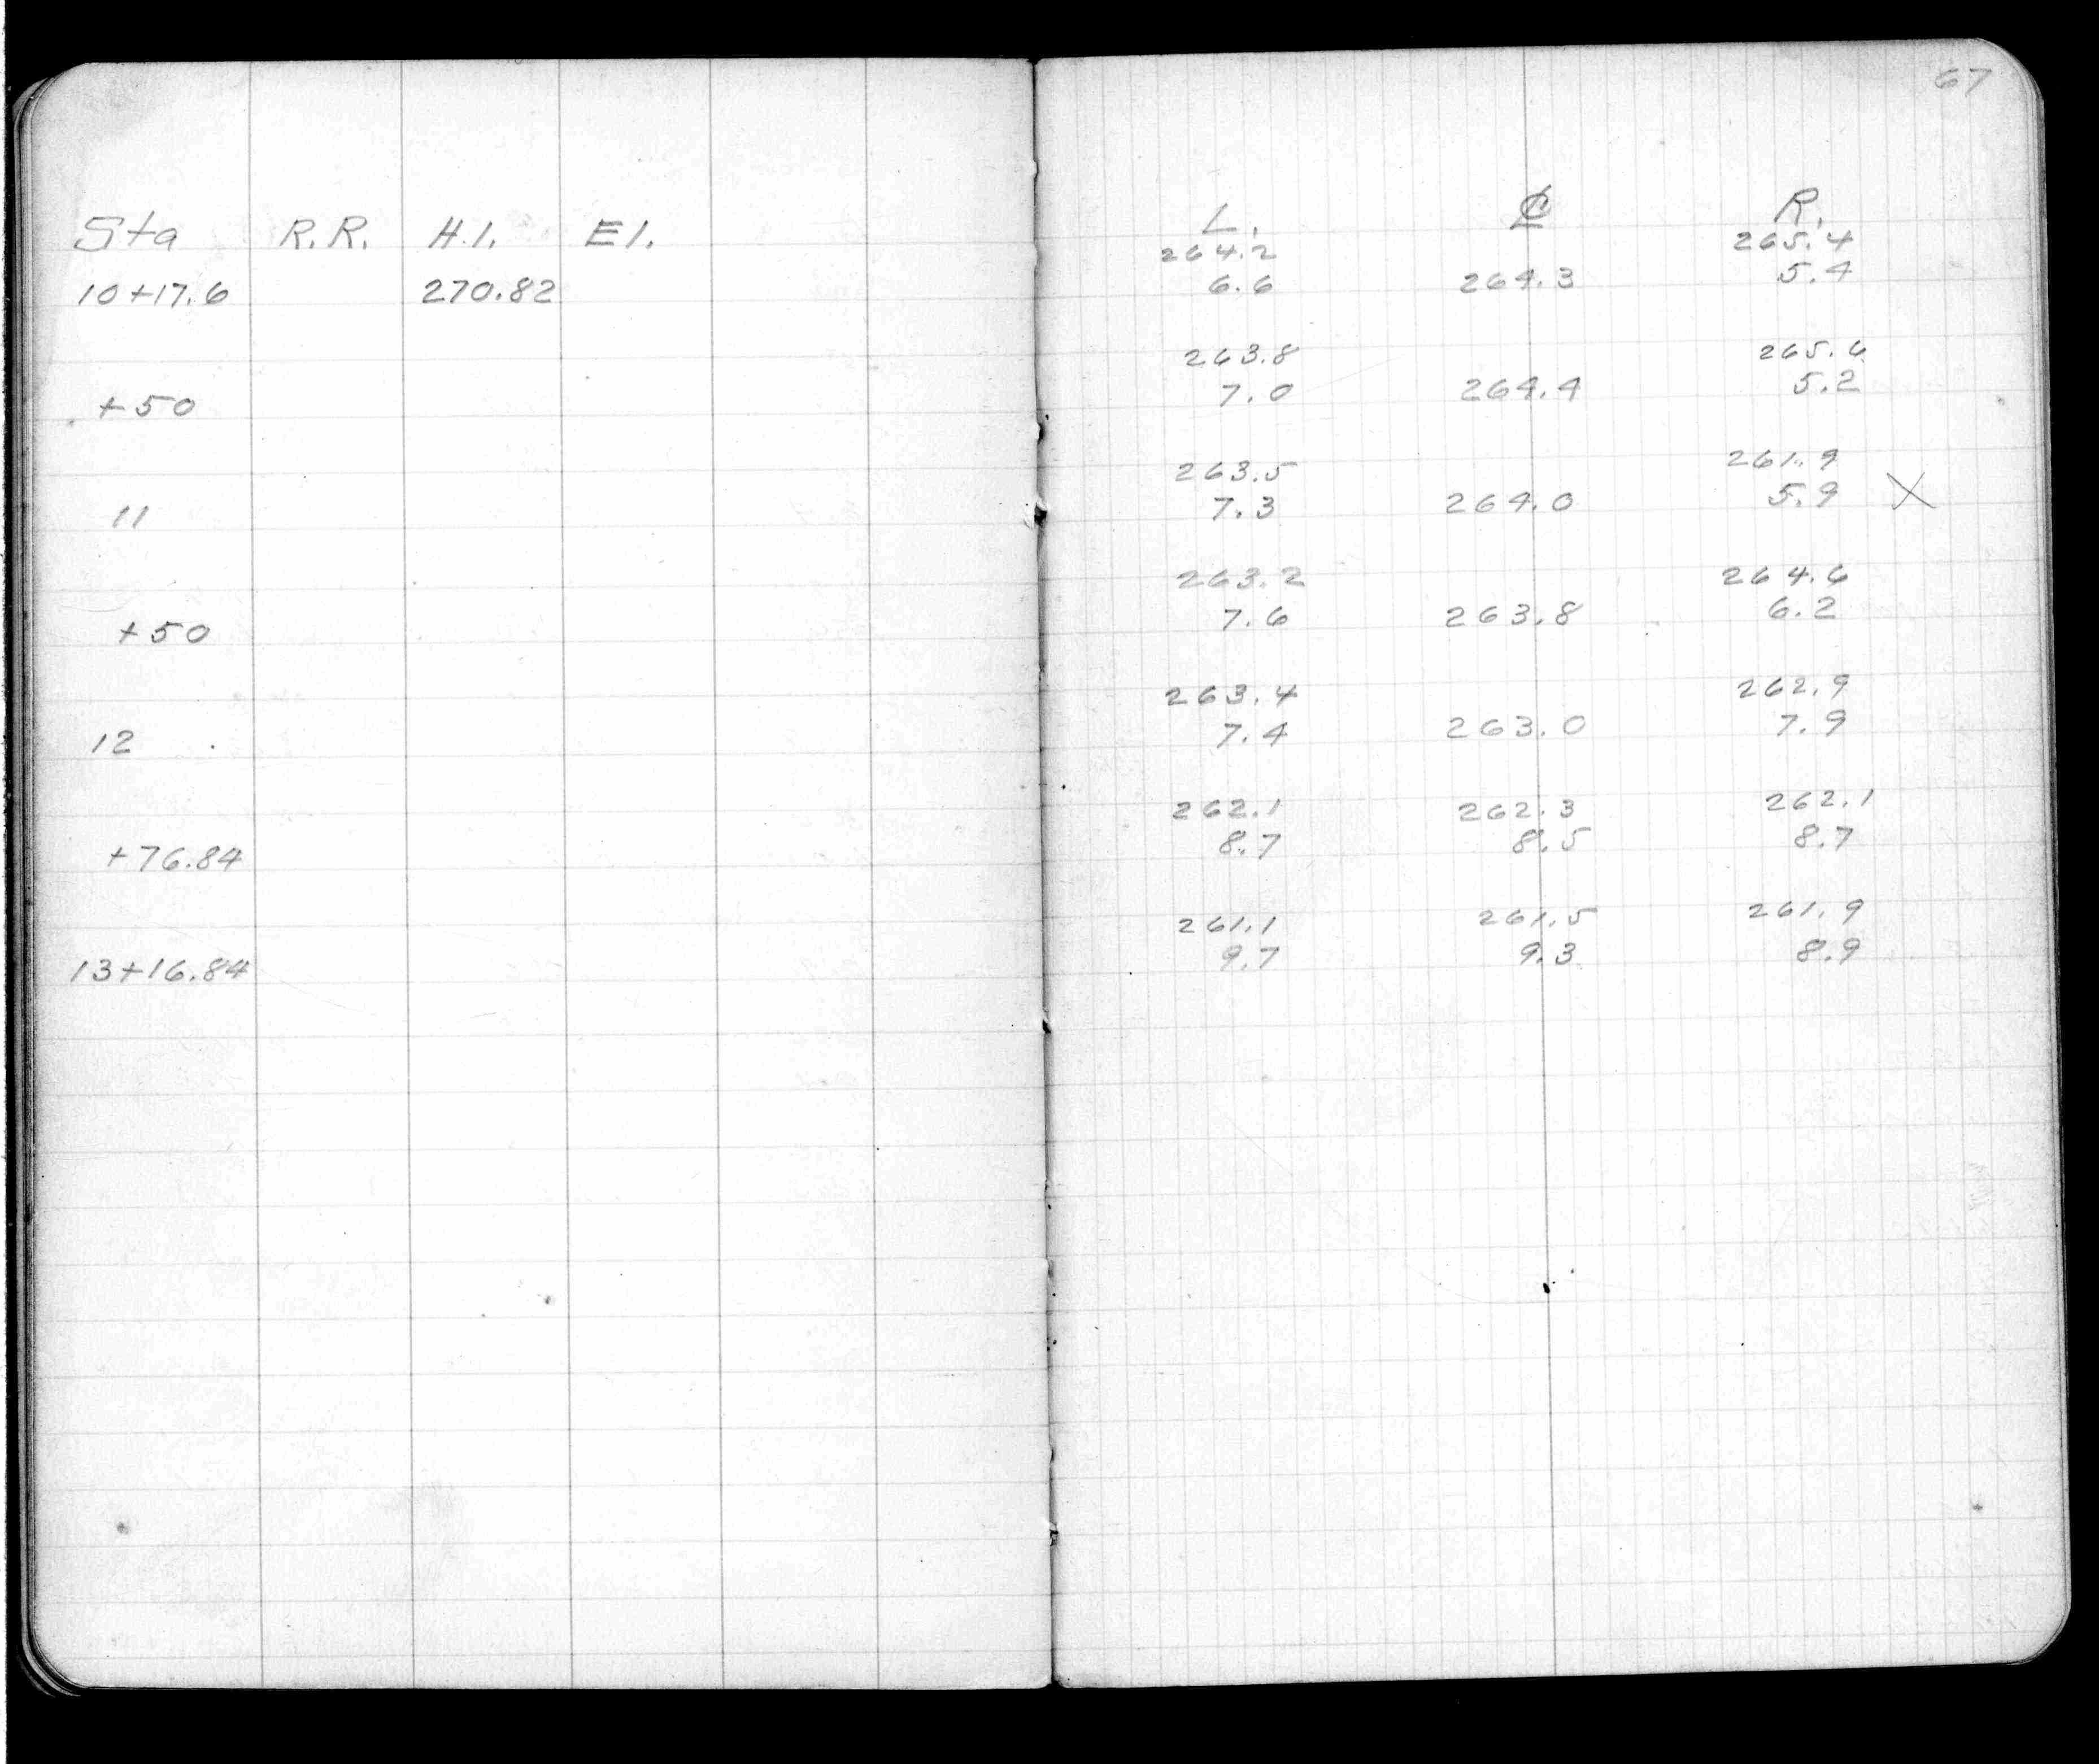 67
Sta R.R. H.I. El. L. ℄ R.
264.2 265.4
10+17.6 270.82 6.6 264.3 5.4
263.8 265.6
+50 7.0 264.4 5.2
263.5 261.9
11 7.3 264.0 5.9 X
263.2 264.6
+50 7.6 263.8 6.2
263.4 262.9
12 7.4 263.0 7.9
262.1 262.3 262.1
+76.84 8.7 8.5 8.7
261.1 261.5 261.9
13+16.84 9.7 9.3 8.9